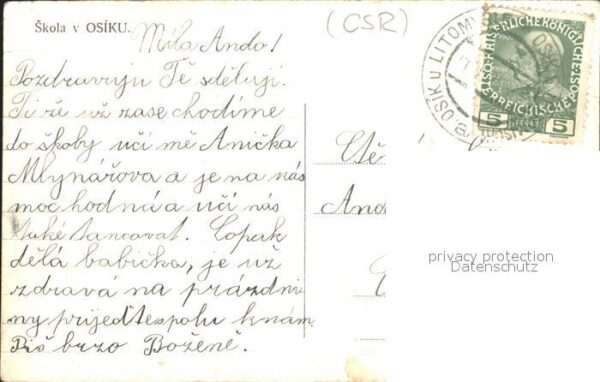 Škola v OSÍKU.
(ČSR)
Milá Ando!
Pozdravuju Tě sděluji
Ti že už zase chodíme
do školy učí mě Anička
Mlynářova a je na nás
moc hodná a učí nás
také tancovat. Copak
dělá babička, je už
zdravá na prázdni
ny prijeďte spolu k nám.
Piš brzo Boženě.
Ctě
And
OSÍK U LITOMY
KAISERLICHE KÖNIGLICHE
ÖSTERREICHISCHE POST
5 5
privacy protection
Datenschutz